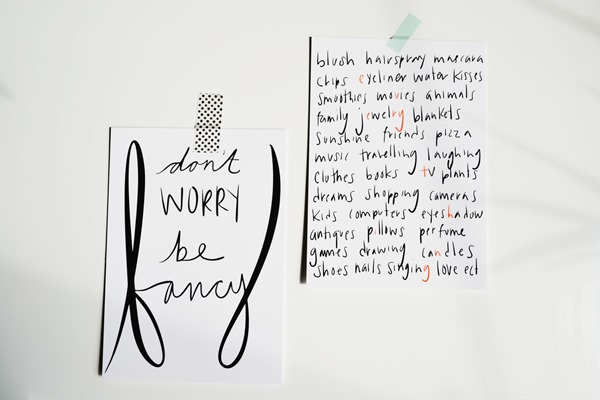 dont
WORRY
be
fancy
blush hairspray mascara
chips eyeliner water kisses
smoothies movies animals
family jewelry blankets
sunshine friends pizza
music travelling laughing
clothes books tv plants
dreams shopping cameras
kids computers eyeshadow
antiques pillows perfume
games drawing candles
shoes nails singing love ect